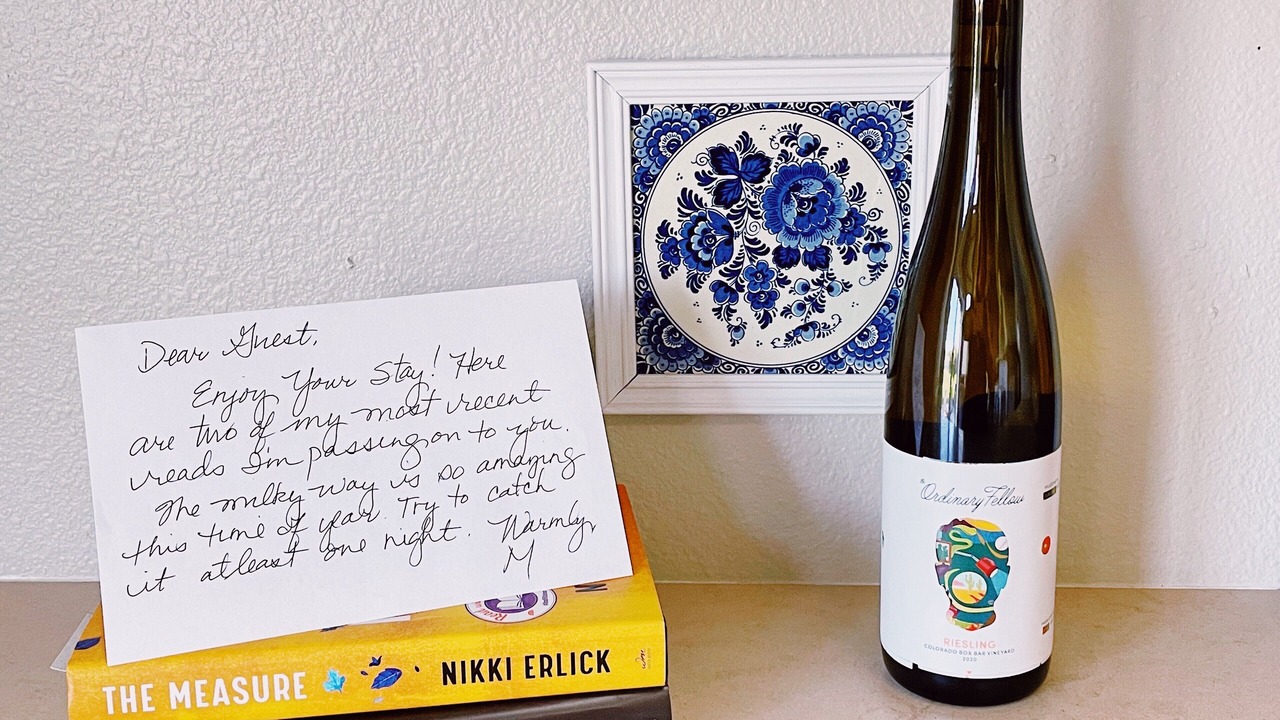 Dear Guest,
Enjoy Your Stay! Here
are two of my most recent
reads I'm passing on to you.
The milky way is so amazing
this time of year. Try to catch
it atleast one night. Warmly,
M
THE MEASURE
NIKKI ERLICK
Read with
The Ordinary Fellow
RIESLING
COLORADO BOX BAR VINEYARD
2020